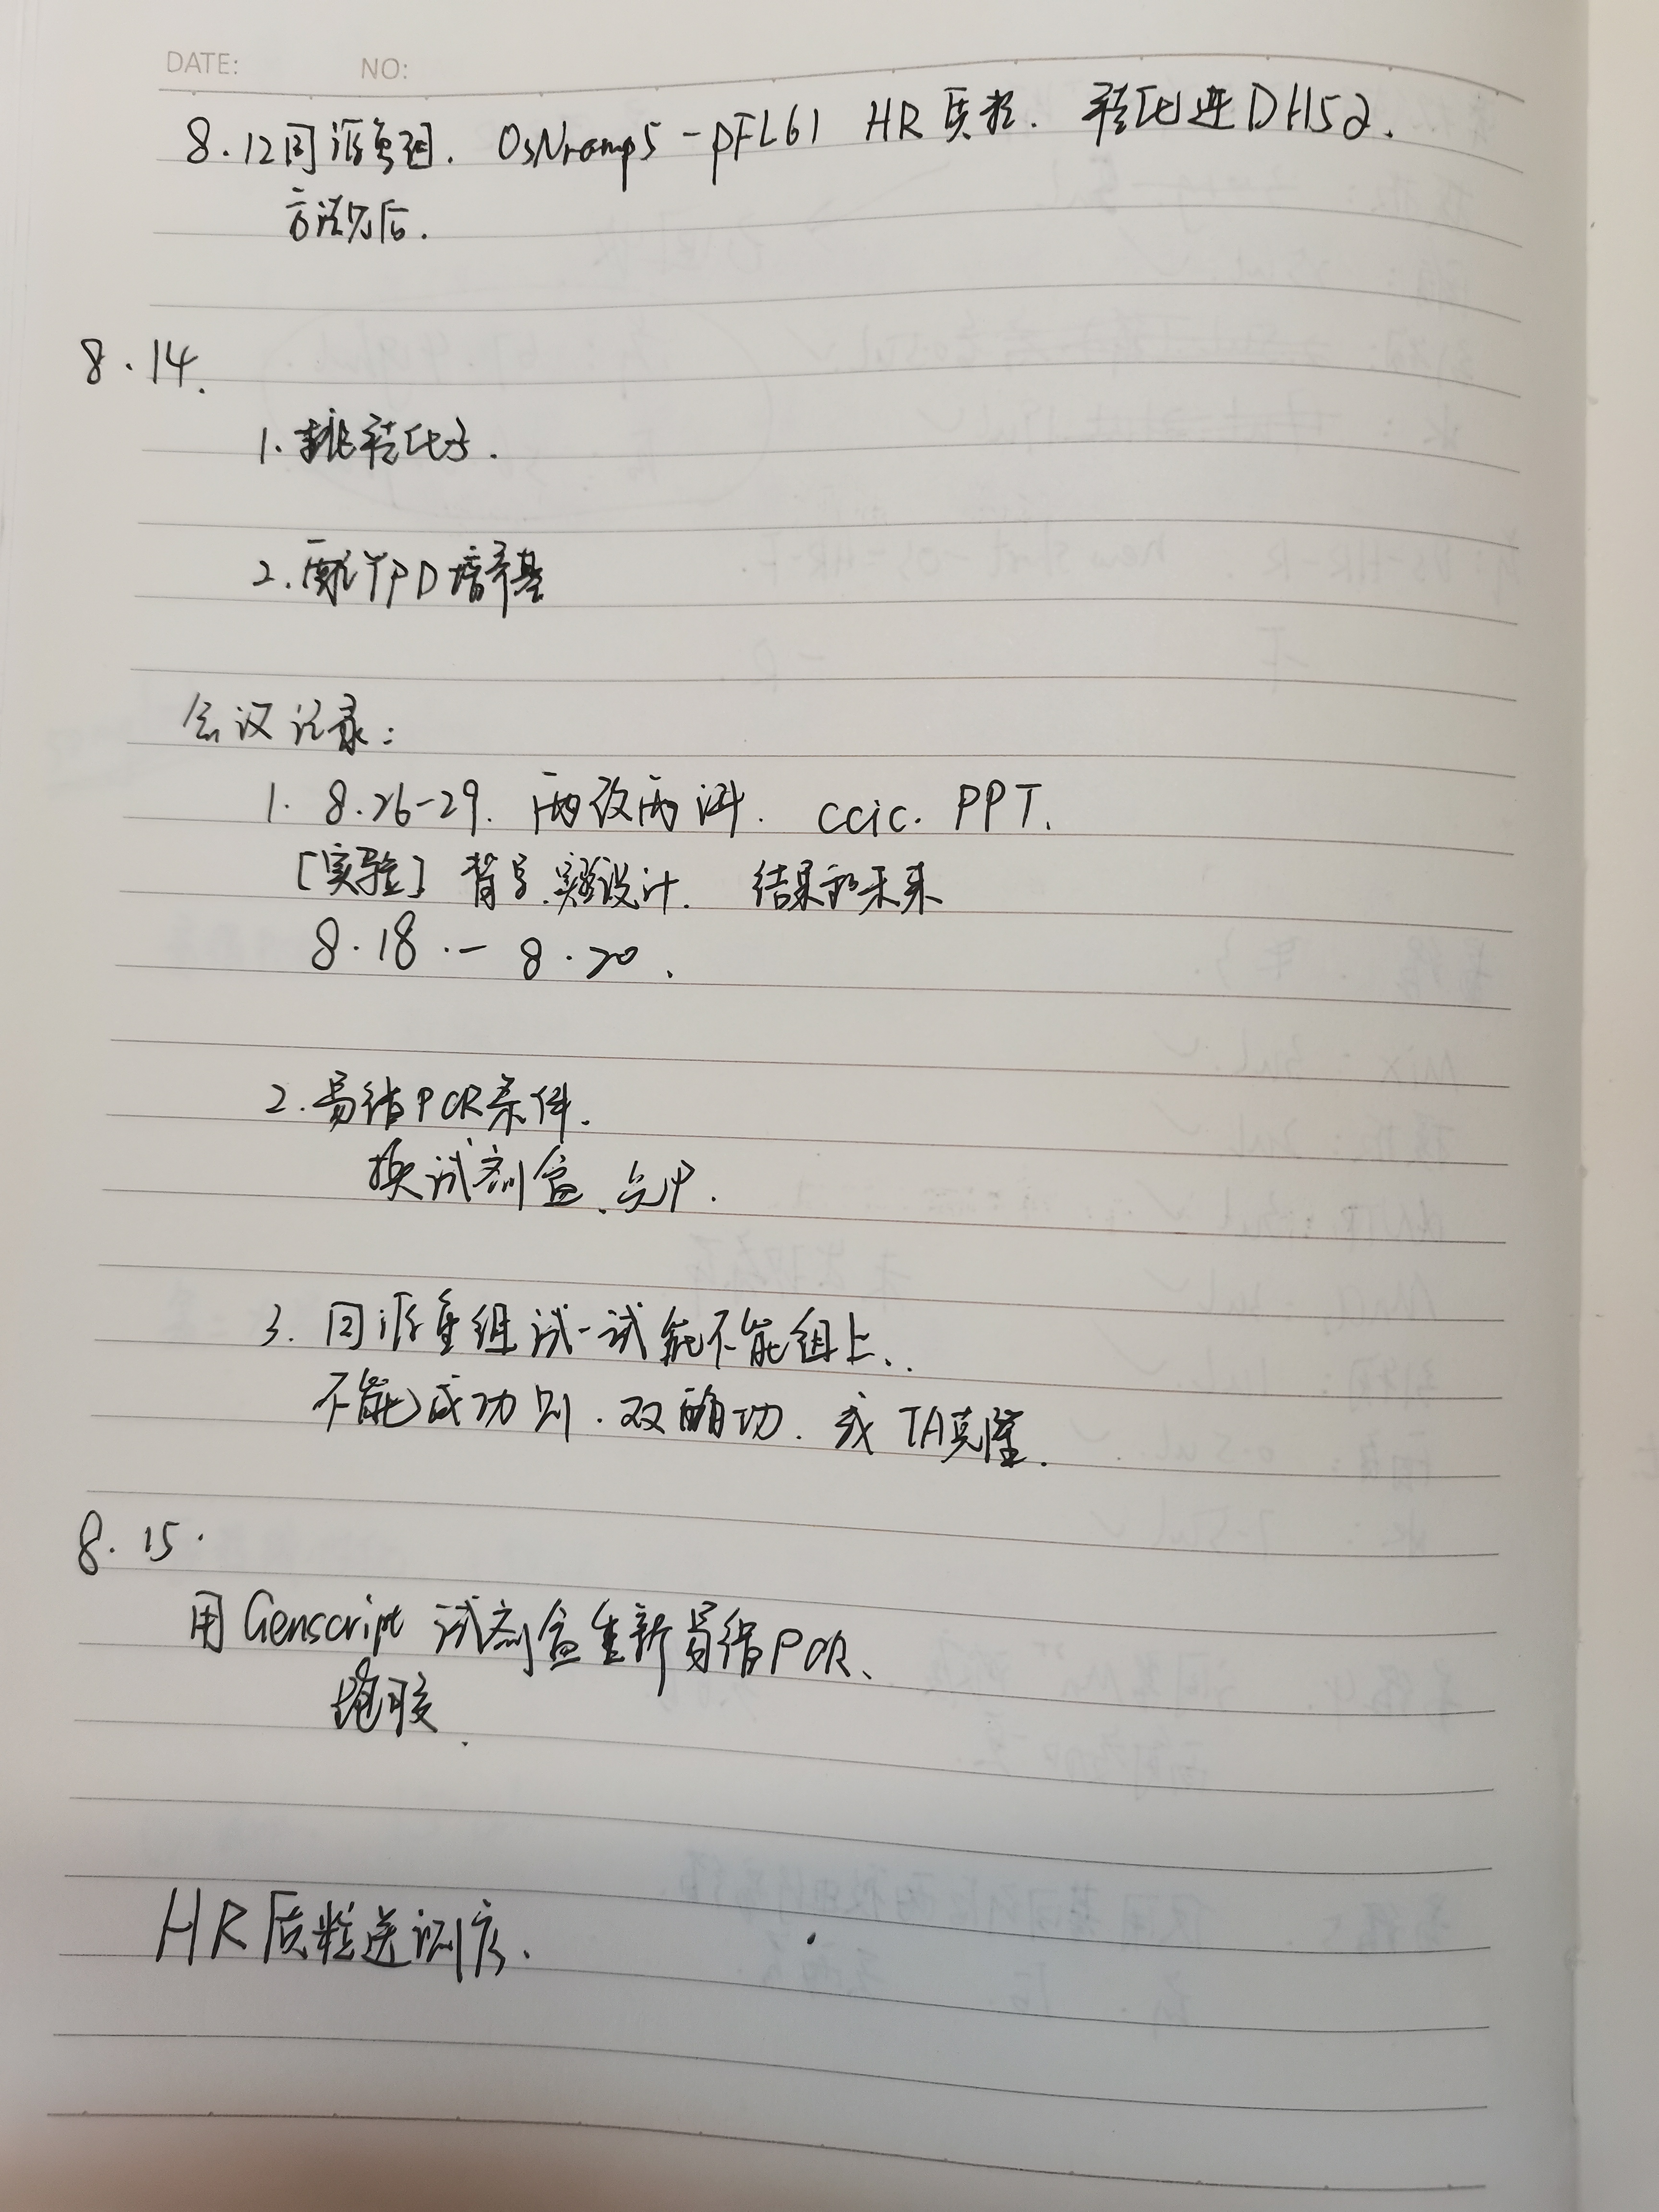 DATE: NO:
8.12同源重组. OsNramp5-pFL61 HR质粒. 转化进DH5α.
8.14.
1.挑转化子.
2.配YPD培养基
会议记录:
1. 8.26-29. 两段两讲. ccic. PPT.
[实验] 背景.实验设计. 结果和未来
8.18.- 8.20.
2.易错PCR条件.
换试剂盒、
3. 同源重组试一试能不能组上、.
不能成功则.双酶切. 或TA克隆.
8.15.
用Genscript 试剂盒重新易错PCR、
跑胶.
HR质粒送测序.